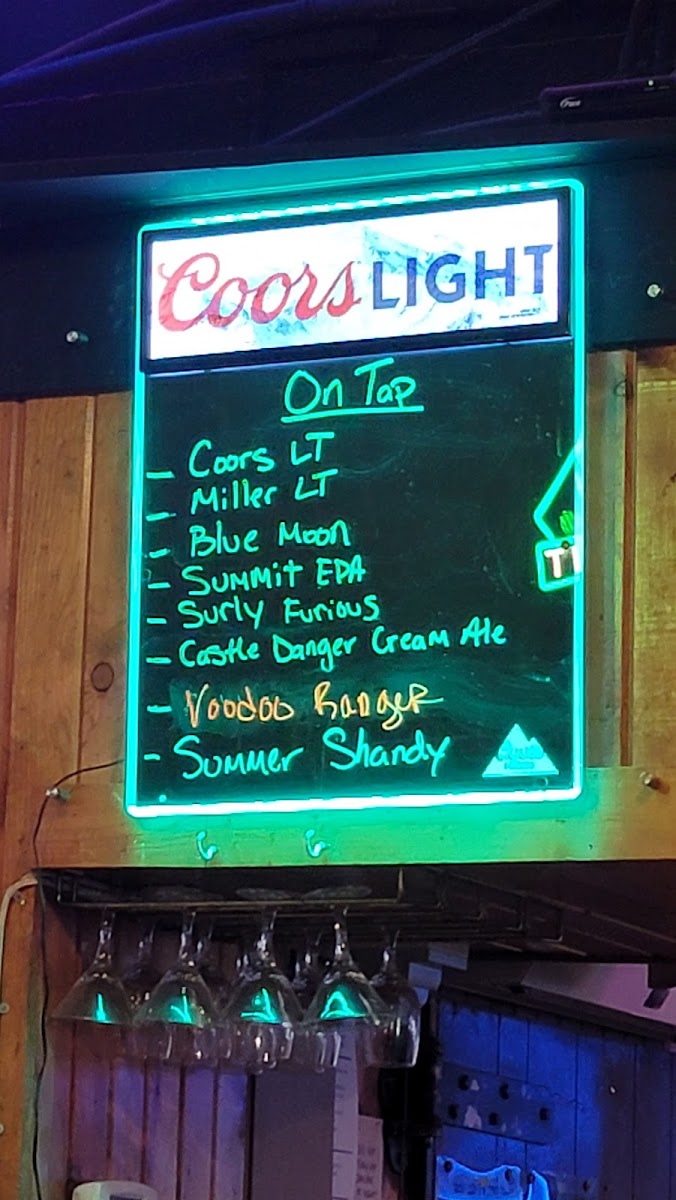 Coors LIGHT
On Tap
- Coors LT
- Miller LT
- Blue Moon
- Summit EPA
- Surly Furious
- Castle Danger Cream Ale
- Voodoo Ranger
- Summer Shandy